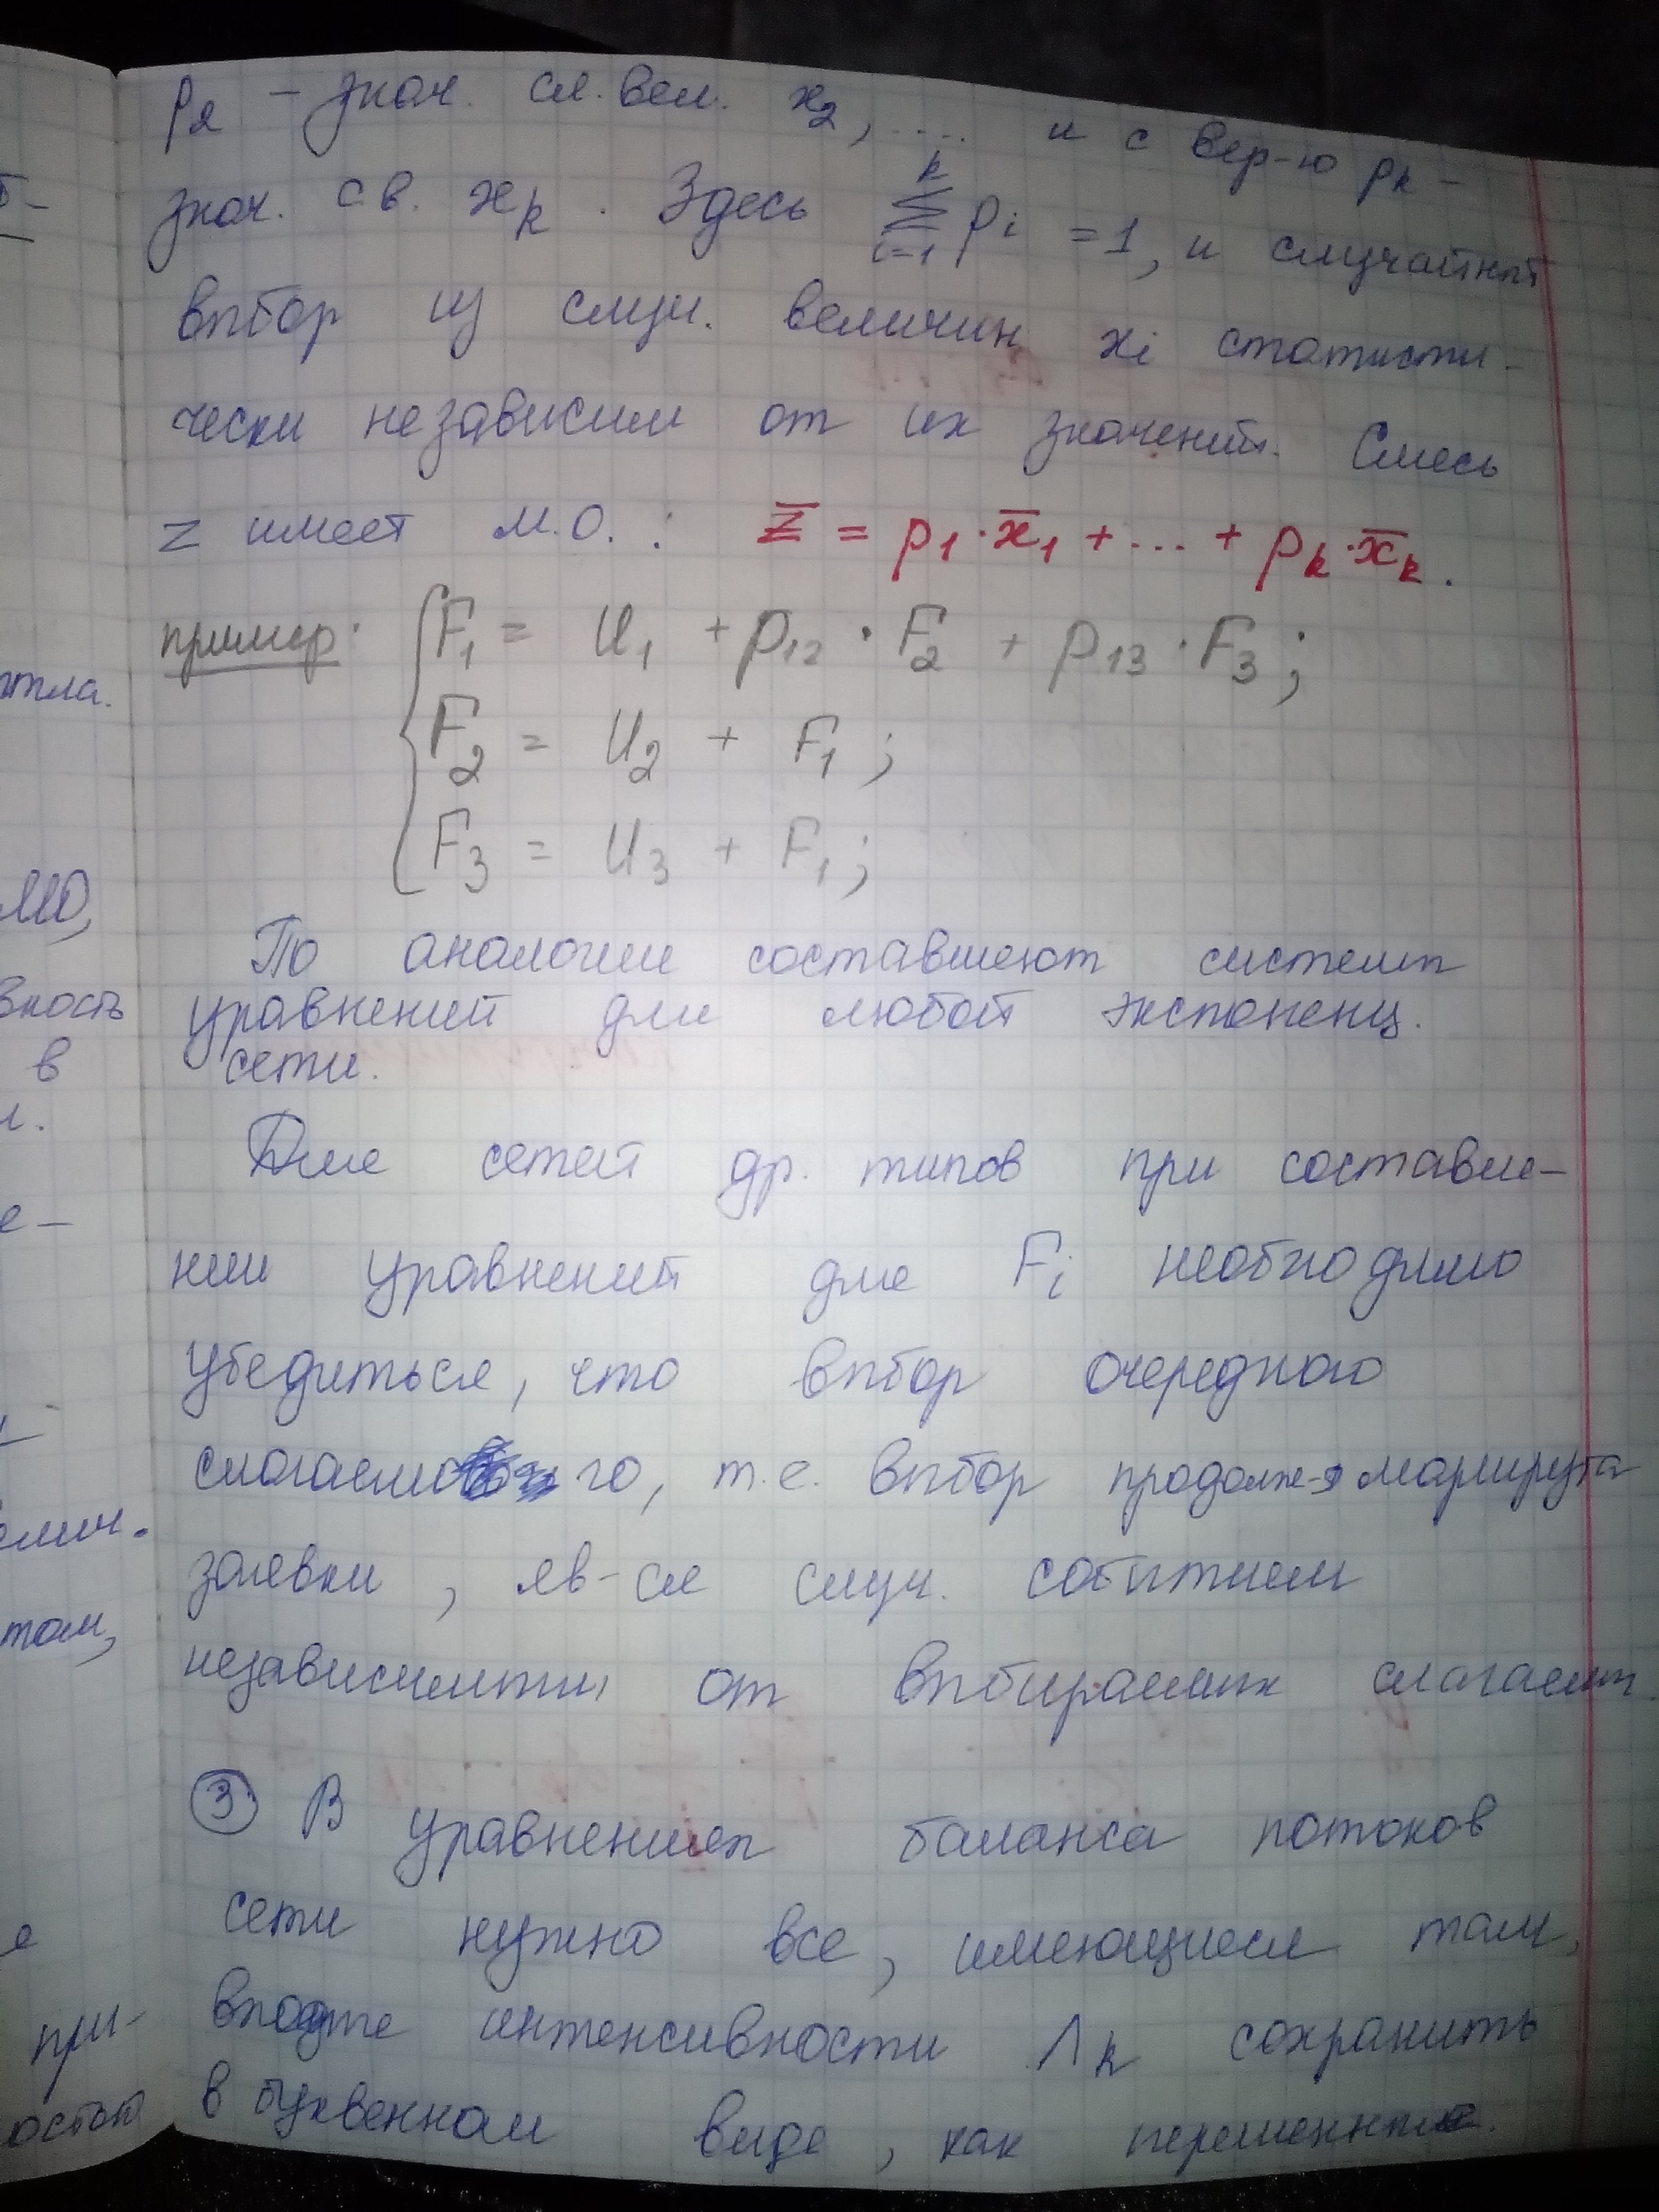 p₂ – знач. сл. вел. x₂, .... и с вер-ю pₖ –
знач. с.в. xₖ. Здесь ∑ᵢ₌₁ᵏ pᵢ = 1, и случайный
выбор из случ. величин xᵢ статисти-
чески независим от их значений. Смесь
z имеет М.О.: z̅ = p₁·x̅₁ + ... + pₖ·x̅ₖ.
пример: F₁ = U₁ + p₁₂ · F₂ + p₁₃ · F₃;
F₂ = U₂ + F₁;
F₃ = U₃ + F₁;
По аналогии составляют системы
уравнений для любой экспоненц.
сети.
Для сетей др. типов при составле-
нии уравнений для Fᵢ необходимо
убедиться, что выбор очередного
слагаемого, т.е. выбор продолж-я маршрута
заявки, яв-ся случ. событием
независимым от выбираемых слагаемых
③ В уравнениях баланса потоков
сети нужно все, имеющиеся там,
входные интенсивности Λₖ сохранить
в буквенном виде, как переменные.
тла.
МО,
вность
в
е –
там,
при-